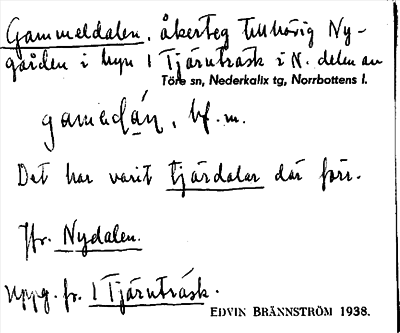 Gammeldalen, åkerteg tillhörig Ny-
gården i byn 1 Tjärnträsk i N. delen av
Töre sn, Nederkalix tg, Norrbottens l.
bf. m.
Det har varit tjärdalar där förr.
Jfr. Nydalen.
Uppg. fr. 1 Tjärnträsk.
EDVIN BRÄNNSTRÖM 1938.